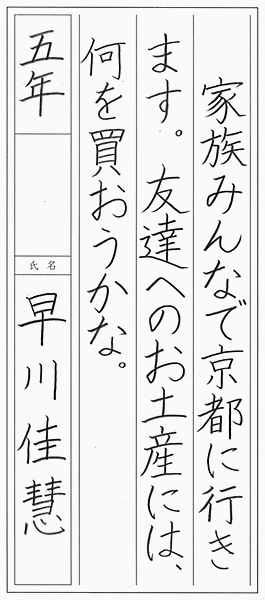 家族みんなで京都に行き
ます。友達へのお土産には、
何を買おうかな。
五年
氏名
早川佳慧